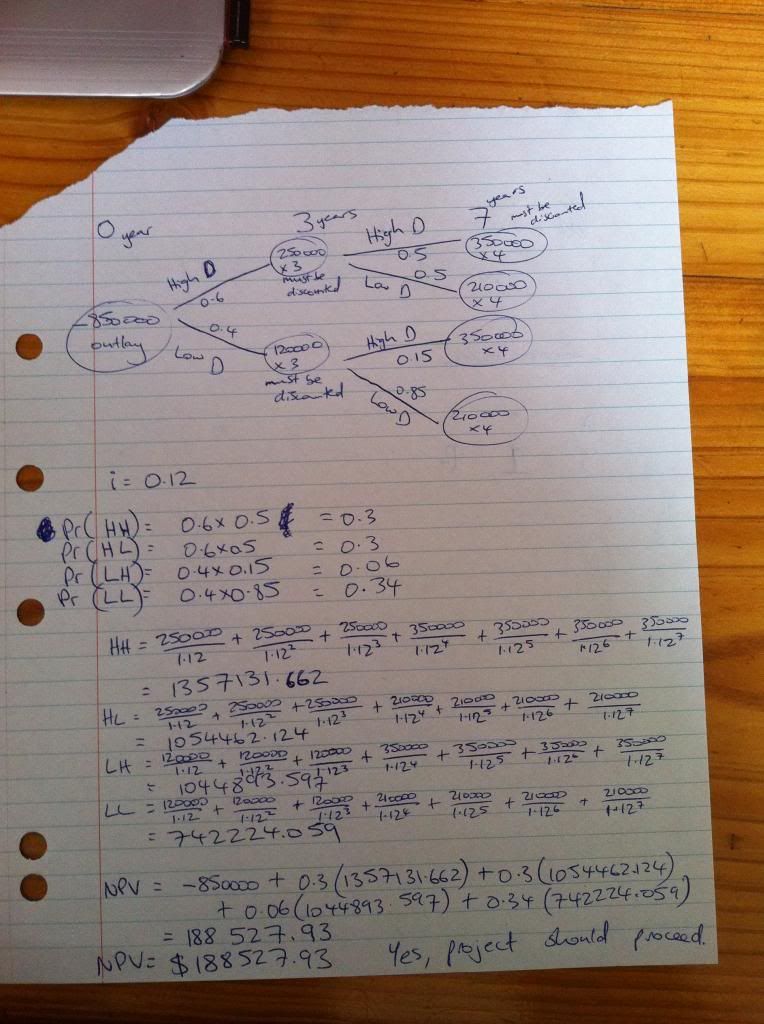 0 year
3 years
7 years must be discounted
High D
0.6
0.4
Low D
-850000
outlay
250000
x3
must be
discounted
120000
x3
must be
discounted
High D
0.5
0.5
Low D
High D
0.15
0.85
Low D
350000
x4
210000
x4
350000
x4
210000
x4
i = 0.12
Pr(HH) = 0.6x0.5 = 0.3
Pr(HL) = 0.6x05 = 0.3
Pr(LH) = 0.4x0.15 = 0.06
Pr(LL) = 0.4x0.85 = 0.34
HH = 250000/1.12 + 250000/1.12² + 250000/1.12³ + 350000/1.12⁴ + 350000/1.12⁵ + 350000/1.12⁶ + 350000/1.12⁷
= 1357131.662
HL = 250000/1.12 + 250000/1.12² + 250000/1.12³ + 210000/1.12⁴ + 210000/1.12⁵ + 210000/1.12⁶ + 210000/1.12⁷
= 1054462.124
LH = 120000/1.12 + 120000/1.12² + 120000/1.12³ + 350000/1.12⁴ + 350000/1.12⁵ + 350000/1.12⁶ + 350000/1.12⁷
= 1044893.597
LL = 120000/1.12 + 120000/1.12² + 120000/1.12³ + 210000/1.12⁴ + 210000/1.12⁵ + 210000/1.12⁶ + 210000/1.12⁷
= 742224.059
NPV = -850000 + 0.3(1357131.662) + 0.3(1054462.124)
+ 0.06(1044893.597) + 0.34(742224.059)
= 188 527.93
NPV = $188527.93 Yes, project should proceed.